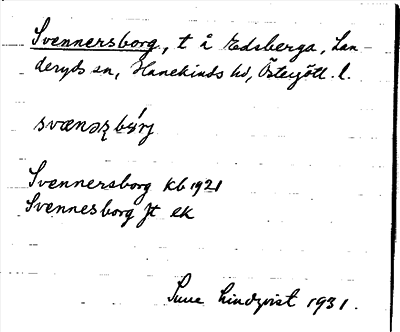 Svennersborg, t å Edsberga, Lan-
deryds sn, Hanekinds hd, Östergötl. l.
svænəʀbǿrj
Svennersborg kb 1921
Svennesborg Jt ek
Sune Lindqvist 1931.